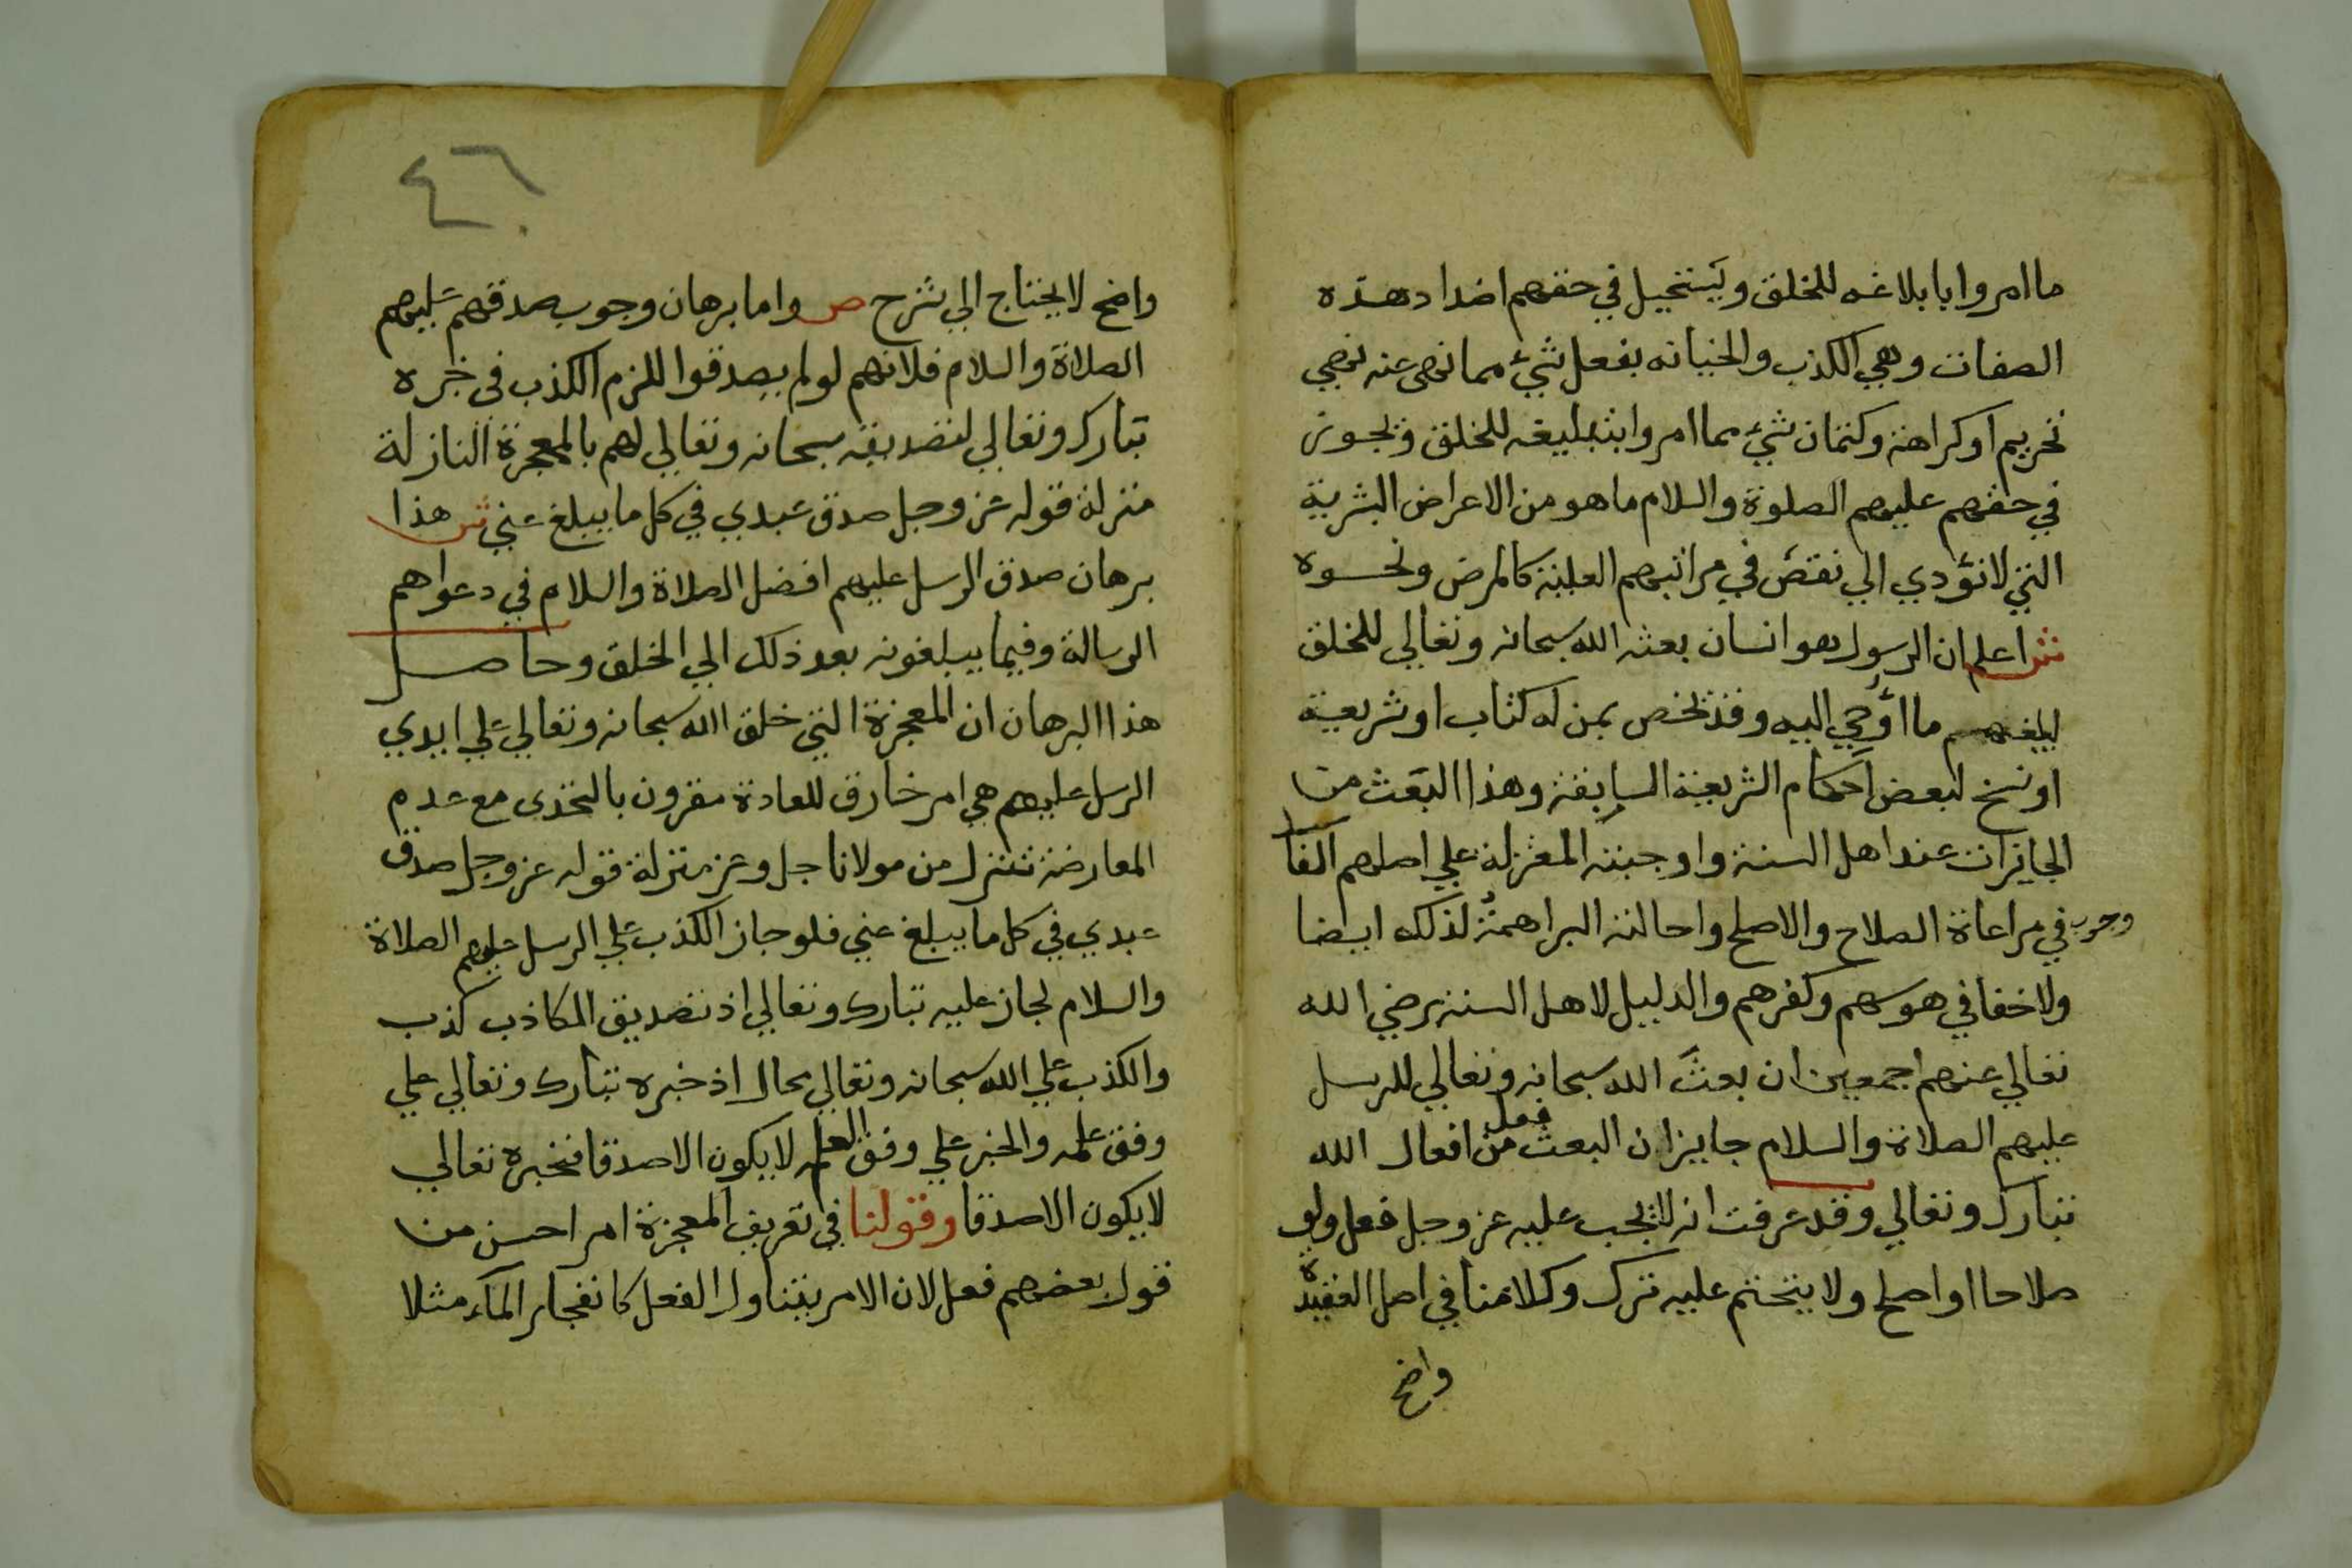 ما امروا بابلاغه للخلق ويستحيل في حقهم اضداد هذه
الصفات وهي الكذب والخيانه بفعل شيء مما نهى عنه نهي
تحريم او كراهة وكتمان شيء مما امروا بتبليغه للخلق ويجوز
في حقهم عليهم الصلوة والسلام ما هو من الاعراض البشرية
التي لا تؤدي الي نقص في مراتبهم العلية كالمرض ونحوه
ش اعلم ان الرسول هو انسان بعثه الله سبحانه وتعالي للخلق
ليبلغهم ما اوحي اليه وقد يخص بمن له كتاب او شريعة
او نسخ لبعض احكام الشريعة السابقة وهذا البعث من
الجايزات عند اهل السنة واوجبته المعتزلة علي اصلهم الفا
وجوب في مراعاة الصلاح والاصلح واحالته البراهمة لذلك ايضا
ولا خفا في هوسهم وكفرهم والدليل لاهل السنة رضي الله
تعالي عنهم اجمعين ان بعث الله سبحانه وتعالي للرسل
عليهم الصلاة والسلام جايز ان البعث فعل من افعال الله
تبارك وتعالي وقد عرفت انه لا يجب عليه عز وجل فعل ولو
صلاحا او اصلح ولا يتحتم عليه ترك وكلامنا في اصل العقيدة
واضح
٤٦
واضح لا يحتاج الي شرح ص واما برهان وجوب صدقهم عليهم
الصلاة والسلام فلانهم لو لم يصدقوا للزم الكذب في خبره
تبارك وتعالي لتصديقه سبحانه وتعالي لهم بالمعجزة النازلة
منزلة قوله عز وجل صدق عبدي في كل ما يبلغ عني ش هذا
برهان صدق الرسل عليهم افضل الصلاة والسلام في دعواهم
الرسالة وفيما يبلغونه بعد ذلك الي الخلق وحاصل
هذا البرهان ان المعجزة التي خلق الله سبحانه وتعالي علي ايدي
الرسل عليهم هي امر خارق للعادة مقرون بالتحدى مع عدم
المعارضة تتنزل من مولانا جل وعز منزلة قوله عز وجل صدق
عبدي في كل ما يبلغ عني فلو جاز الكذب علي الرسل عليهم الصلاة
والسلام لجاز عليه تبارك وتعالي اذ تصديق الكاذب كذب
والكذب علي الله سبحانه وتعالي محال اذ خبره تبارك وتعالي علي
وفق علمه والخبر علي وفق العلم لا يكون الا صدقا فخبره تعالي
لا يكون الا صدقا وقولنا في تعريف المعجزة امر احسن من
قول بعضهم فعل لان الامر يتناول الفعل كانفجار الماء مثلا